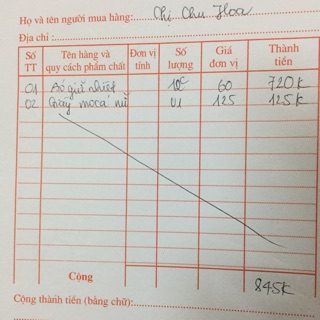 Họ và tên người mua hàng: Chị Chu Hoa
Địa chỉ:
Số TT Tên hàng và quy cách phẩm chất Đơn vị tính Số lượng Giá đơn vị Thành tiền
01 Bó giữ nhiệt 60 720K
02 Giày moca nữ 01 125 125K
Cộng 845K
Cộng thành tiền (bằng chữ):